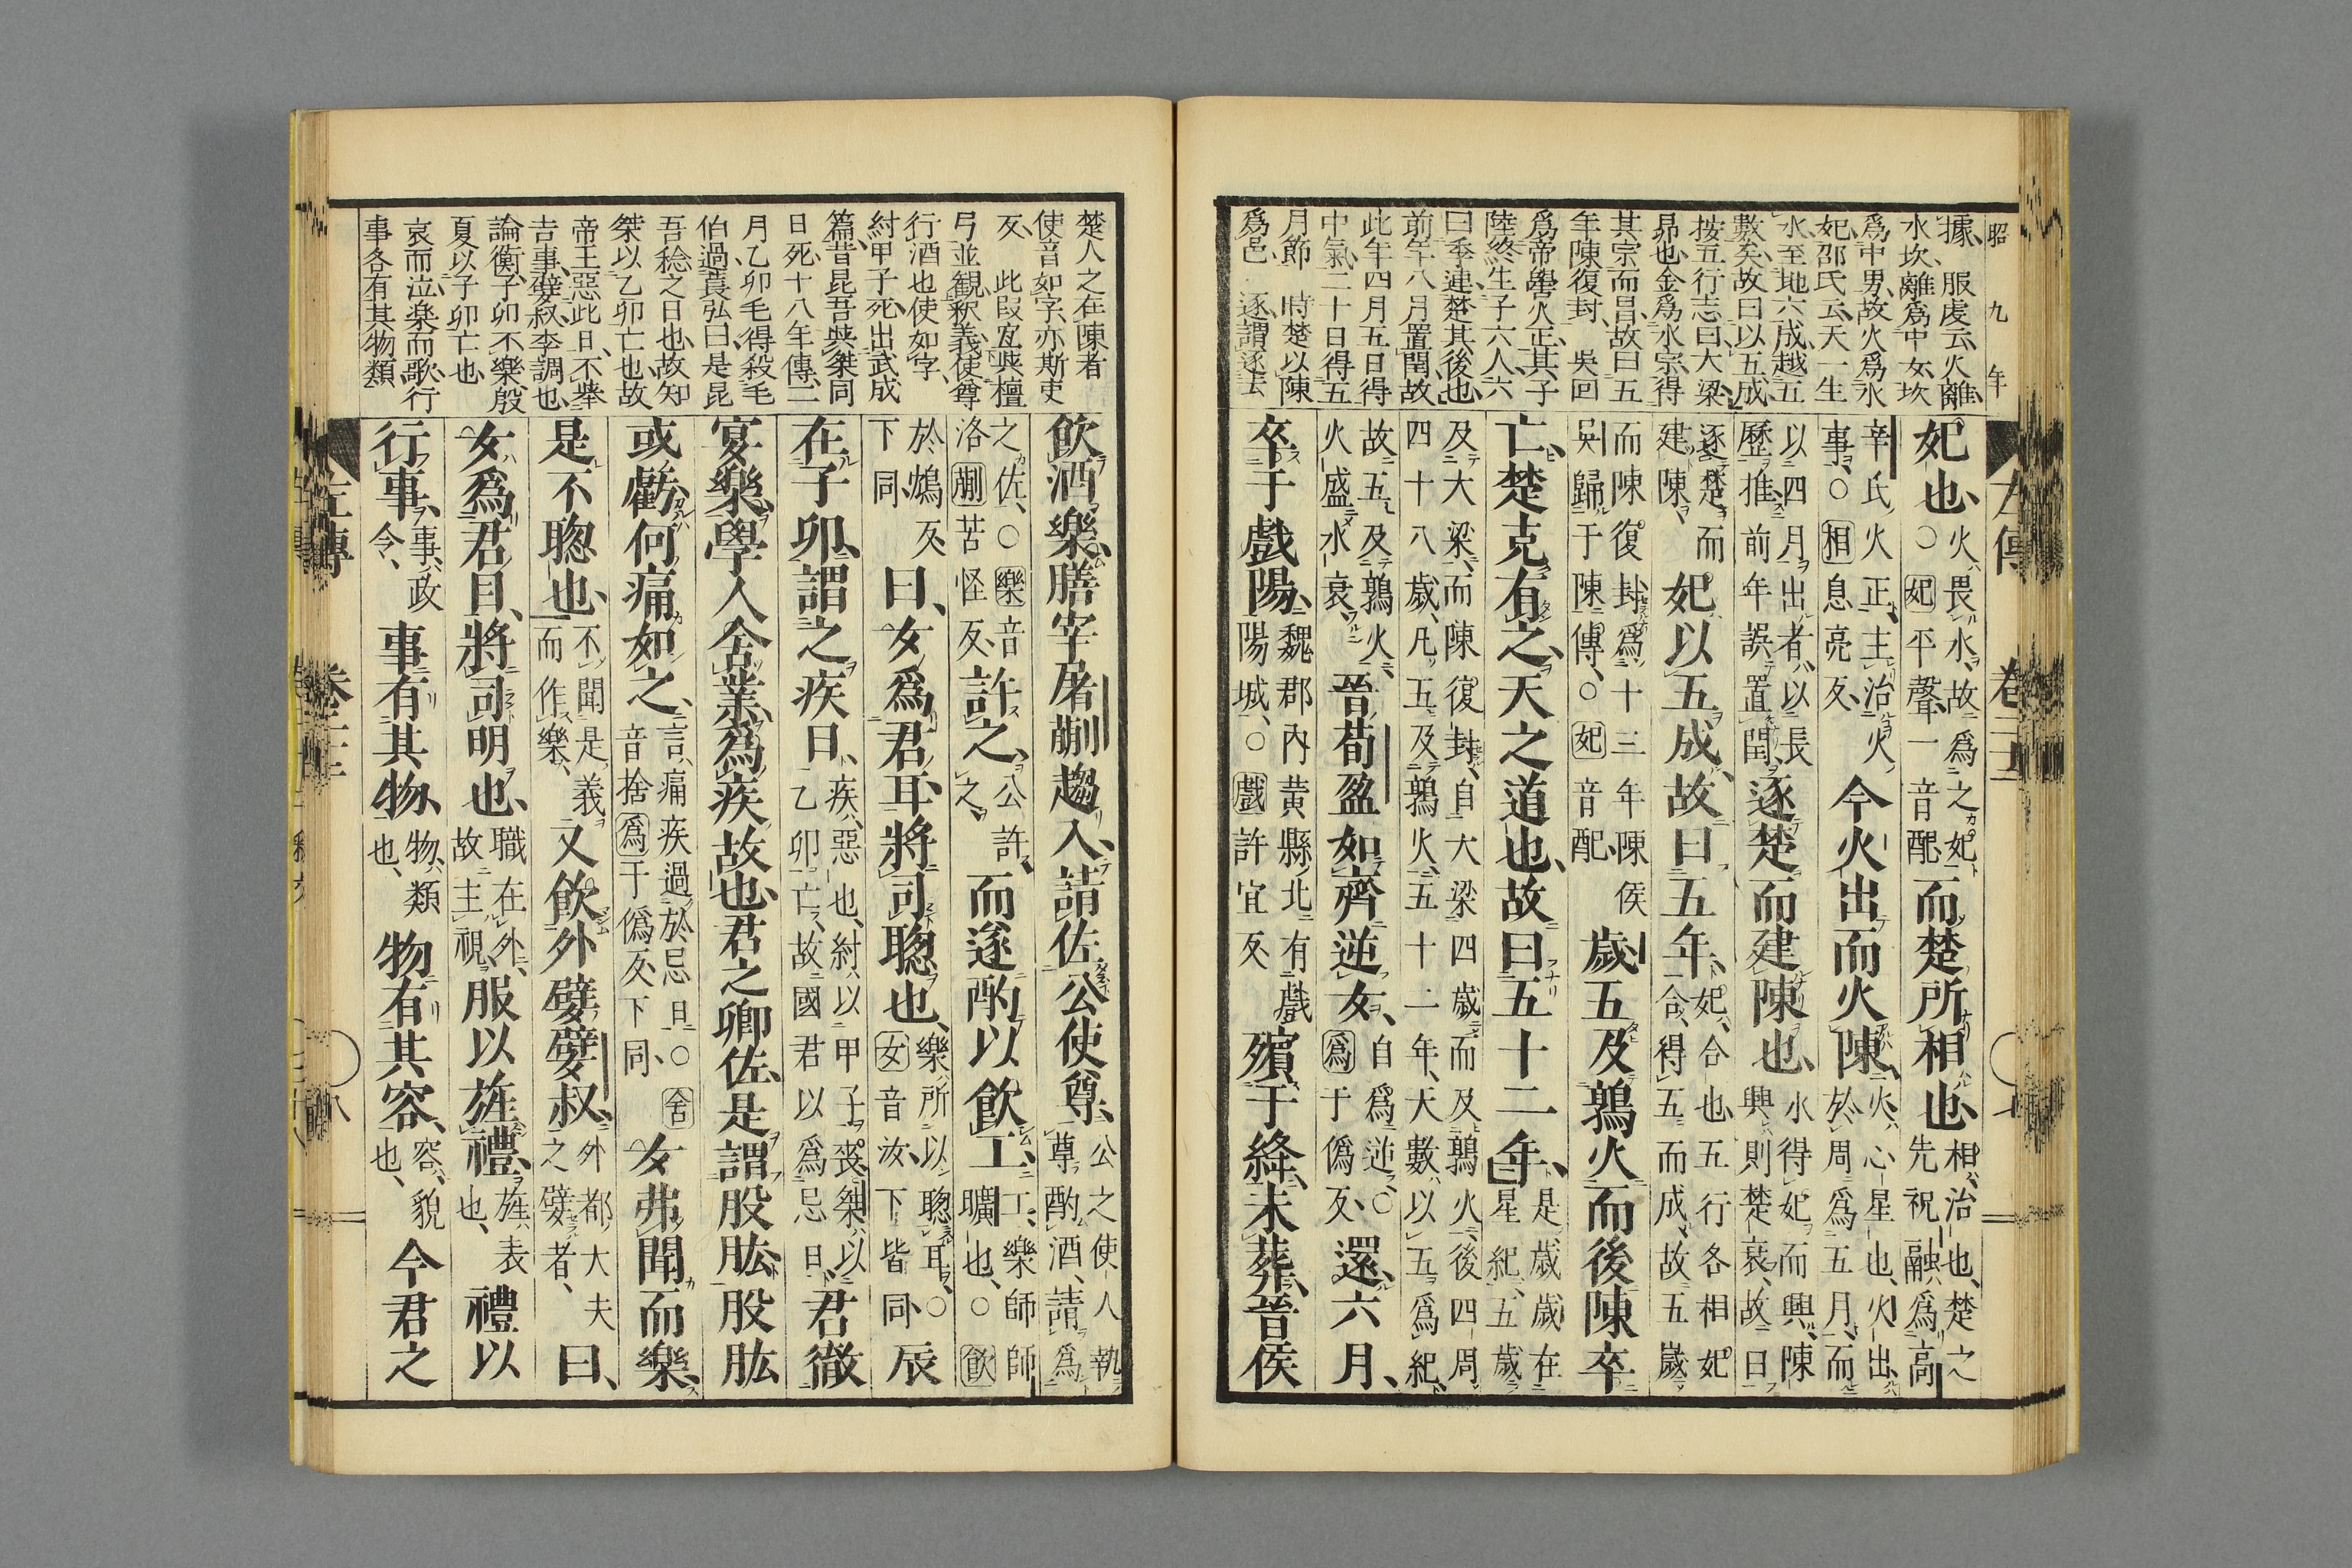 昭九年
據、 服虔云火離、
水坎、離爲中女、坎
爲中男、故火爲水
妃、邵氏云、天一生
水、至地六成、越五
數矣、故曰以五成、
按五行志曰、大梁、
昴也、金爲水宗、得
其宗而昌、故曰五
年陳復封、 吳回
爲帝嚳火正、其子
陸終生子六人、六
曰季連、楚其後也、
前年八月置閏、故
此年四月五日得
中氣、二十日得五
月節、 時楚以陳
爲邑、 逐謂逐去
妃也、火畏水、故爲之妃、○妃平聲、一音配、而楚所相也、相、治也、楚之先祝融、爲高
辛氏火正、主治火事、○相息亮反、今火出而火陳、火、心星也、火出、於周爲五月、而
以四月出者、以長歷推、前年誤置閏、逐楚而建陳也、水得妃而興、陳興、則楚衰、故曰
逐楚而建陳、妃以五成、故曰五年、妃、合也、五行各相妃合、得五而成、故五歲
而陳復封、爲十三年陳侯吳歸于陳傳、○妃音配、歲五及鶉火、而後陳卒
亡、楚克有之、天之道也、故曰五十二年、是歲歲在星紀、五歲
及大梁、而陳復封、自大梁四歲而及鶉火、後四周四十八歲、凡五及鶉火、五十二年、天數以五爲紀、
故五及鶉火、火盛水衰、晉荀盈如齊逆女、自爲逆、○爲于僞反、還、六月、
卒于戲陽、魏郡內黃縣北有戲陽城、○戲許宜反、殯于絳、未葬、晉侯
楚人之在陳者
使音如字、亦斯吏
反、 此叚宜與檀
弓並観、釈義、使尊
行酒也使如字、
紂甲子死、出武成
篇、昔昆吾與桀同
日死、十八年傳、二
月乙卯毛得殺毛
伯過、萇弘曰、是昆
吾稔之日也、故知
桀以乙卯亡也、故
帝王惡此日、不舉
吉事、嬖叔、李調也、
論衡、子卯不樂、殷
夏以子卯亡也、
哀而泣、楽而歌、行
事各有其物類
飲酒樂、膳宰屠蒯趨入、請佐公使尊、公之使人執尊酌酒、請爲
之佐、○樂音洛蒯苦怪反、許之、公許之、而遂酌以飲工、工、樂師師曠也、○飲
於鴆反下同、曰、女爲君耳、將司聰也、樂、所以聰耳、○女音汝、下皆同、辰
在子卯、謂之疾日、疾、惡也、紂以甲子喪、桀以乙卯亡、故國君以爲忌日、君徹
宴樂、學人舍業、爲疾故也、君之卿佐、是謂股肱、股肱
或虧、何痛如之、言痛疾過於忌日、○舍音捨爲于僞反下同、女弗聞而樂、
是不聰也、不聞是義而作樂、又飲外嬖嬖叔、外都大夫之嬖者、曰、
女爲君目、將司明也、職在外、故主視、服以旌禮、旌、表也、禮以
行事、事、政令、事有其物、物、類也、物有其容、容、貌也、今君之
左傳 卷二十二